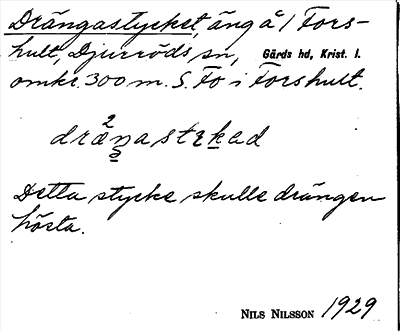 Drängastycket, äng å 1 Fors-
hult, Djurröds sn, Gärds hd, Krist. l.
omkr. 300 m. S. Fo i Forshult.
Detta stycke skulle drängen
hösta.
NILS NILSSON 1929